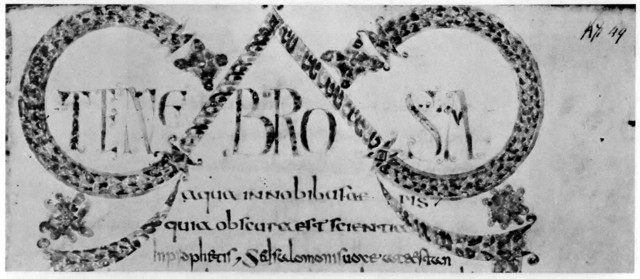 TENE BRO SA
aqua innobibus ae ris
quia obscura est scientia
Inprophetis, Sed salomonis uoce